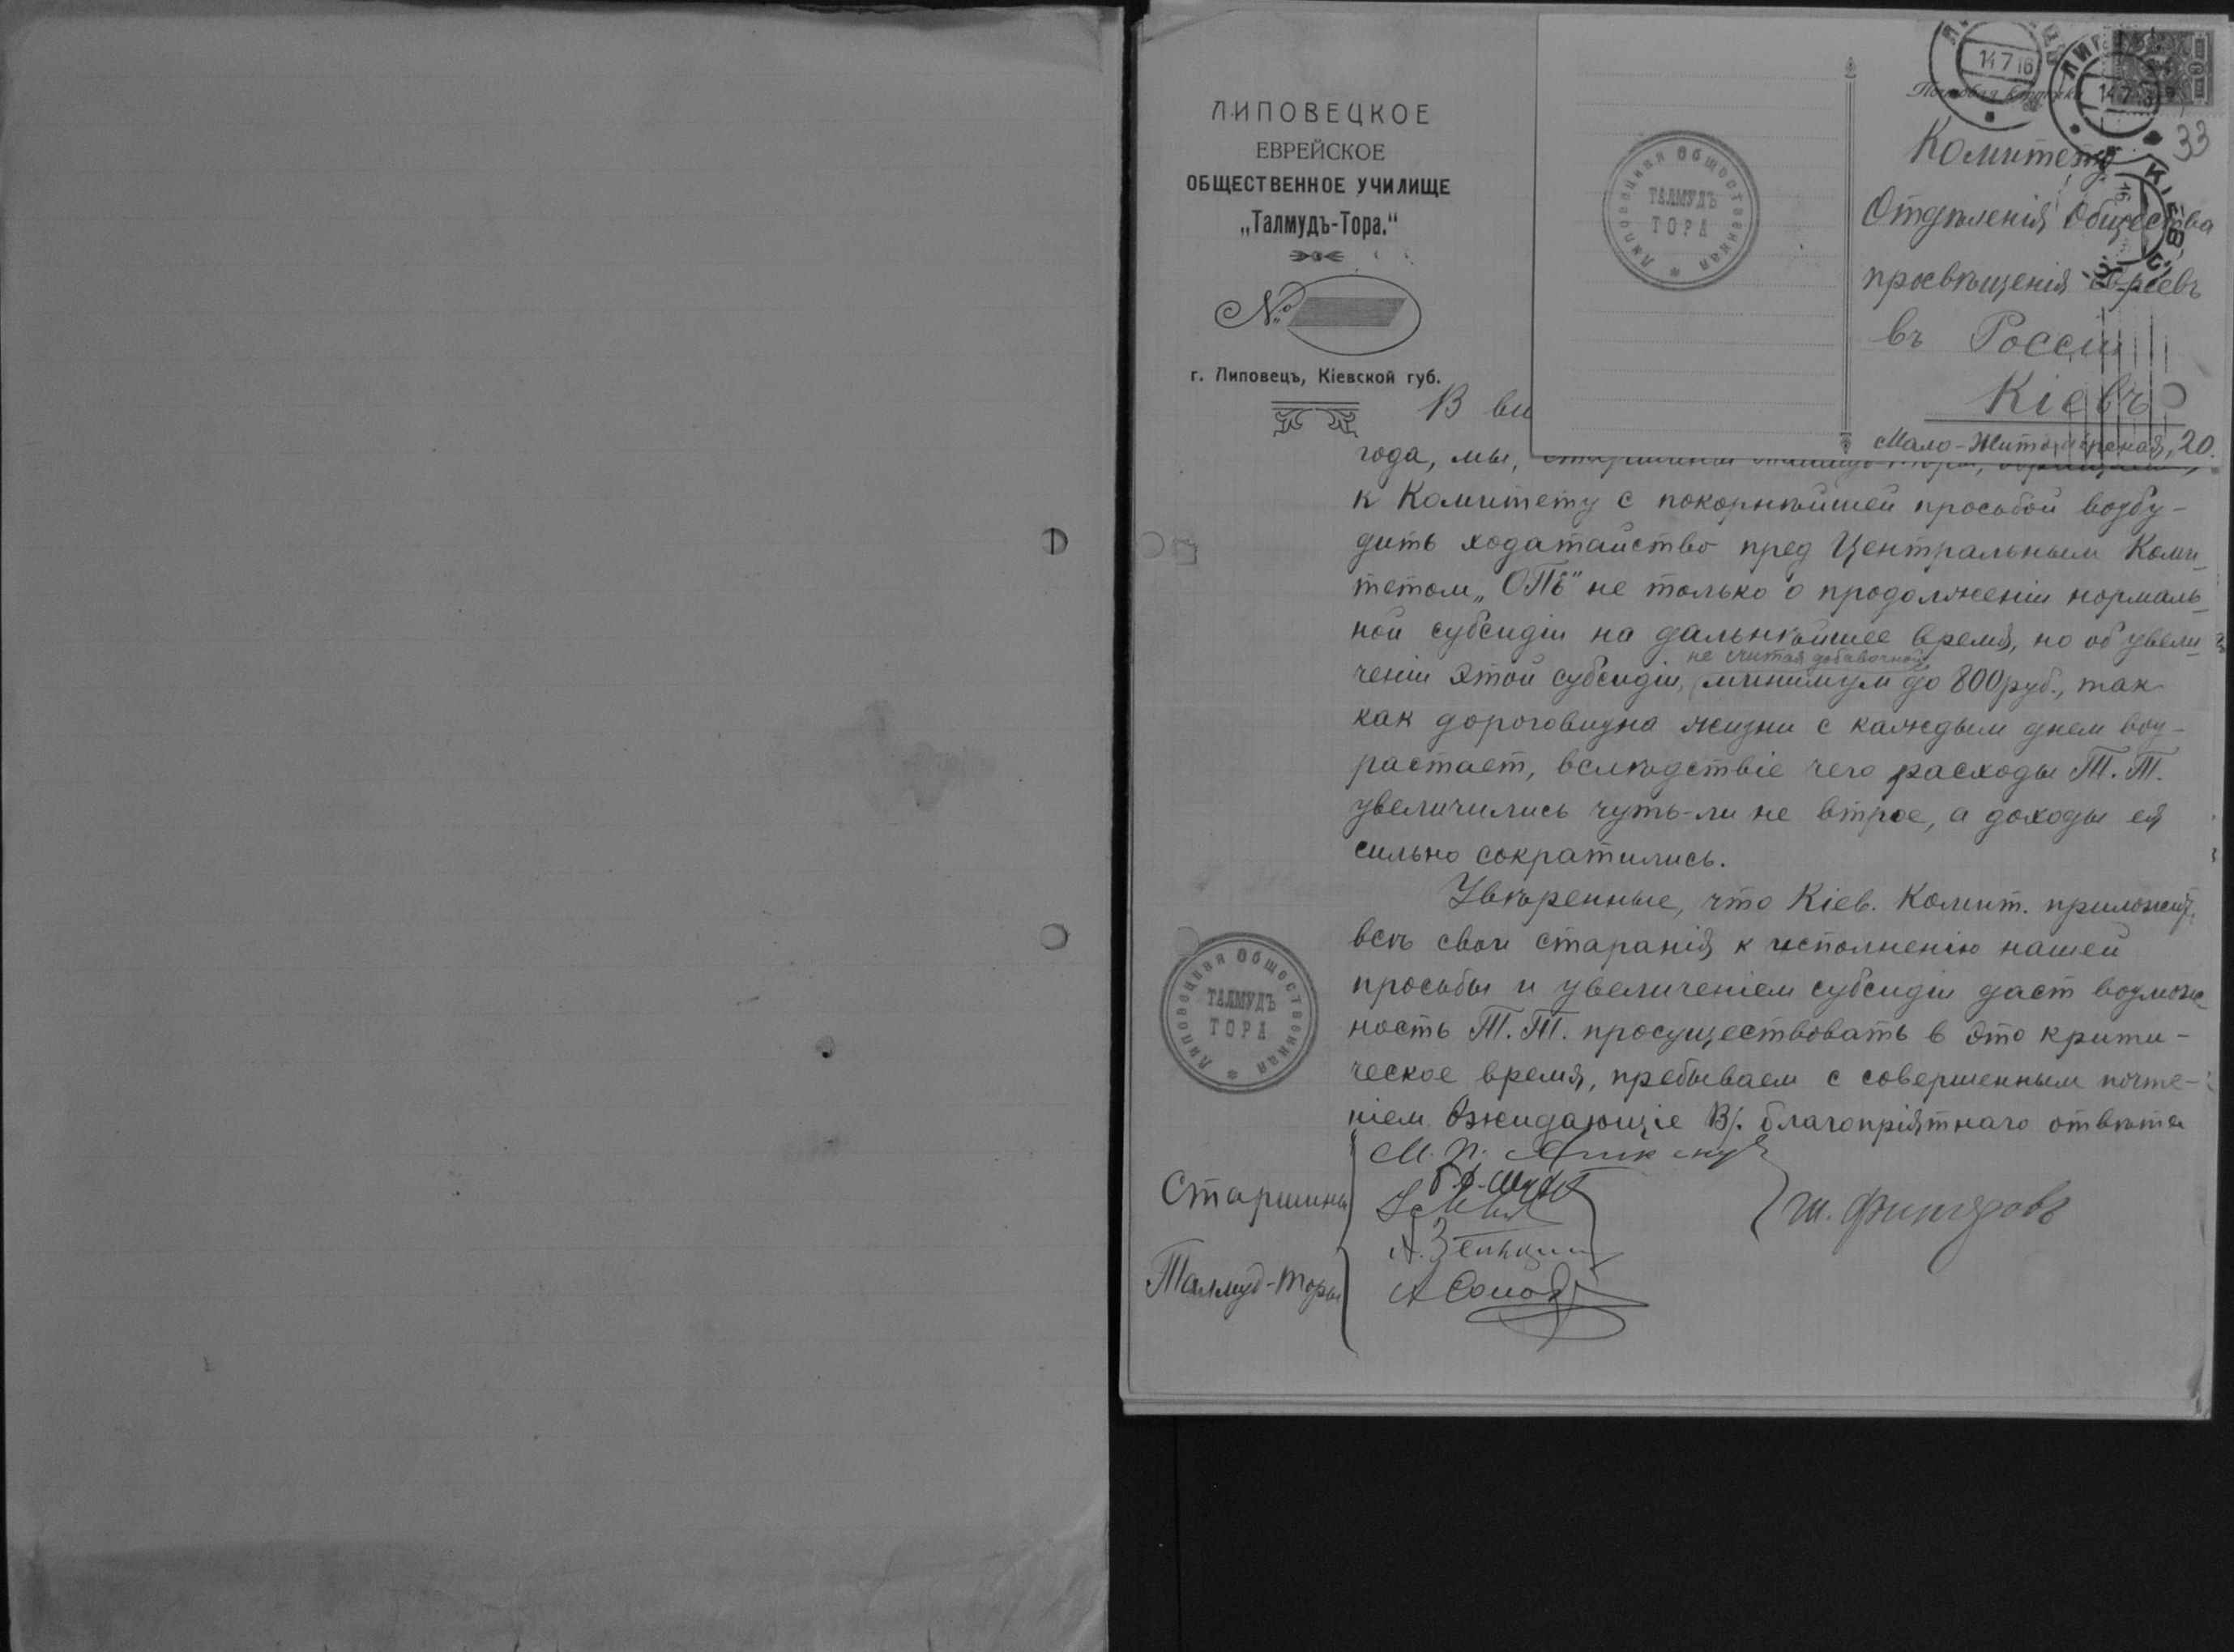 ЛИПОВЕЦКОЕ
ЕВРЕЙСКОЕ
ОБЩЕСТВЕННОЕ УЧИЛИЩЕ
„Талмудъ-Тора."
№
г. Липовецъ, Кіевской губ.
Почтовая карточка
14 7 16
14 7
33
КІЕВЪ
Липовецкая Общественная
ТАЛМУДЪ
ТОРА
Комитету
Отдѣленія Общества
просвѣщенія евреевъ
въ Россіи
Кіевъ
Мало-Житомірская, 20.
В ви
года, мы,
к Комитету с покорнѣйшей просьбой возбу-
дить ходатайство пред Центральным Коми-
тетом „ОПЕ" не только о продолженіи нормаль-
ной субсидіи на дальнѣйшее время, но об увели-
не считая добавочной
ченіи этой субсидіи, минимум до 800 руб., так
как дороговизна жизни с каждым днем воз-
растает, вслѣдствіе чего расходы Т. Т.
увеличились чуть-ли не втрое, а доходы ея
сильно сократились.
Увѣренные, что Кіев. Комит. приложит
всѣ свои старанія к исполненію нашей
просьбы и увеличеніем субсидіи даст возмож-
ность Т. Т. просуществовать в это крити-
ческое время, пребываем с совершенным почте-
ніем. Ожидающіе В/. благопріятнаго отвѣта
Липовецкая Общественная
ТАЛМУДЪ
ТОРА
Старшины
Талмуд-Торы